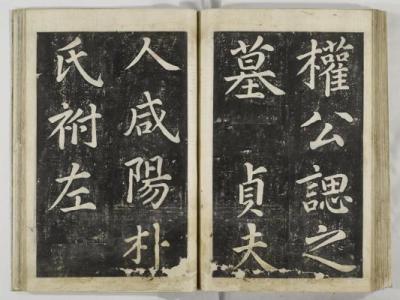 權公諰之
墓 貞夫
人咸陽朴
氏祔左